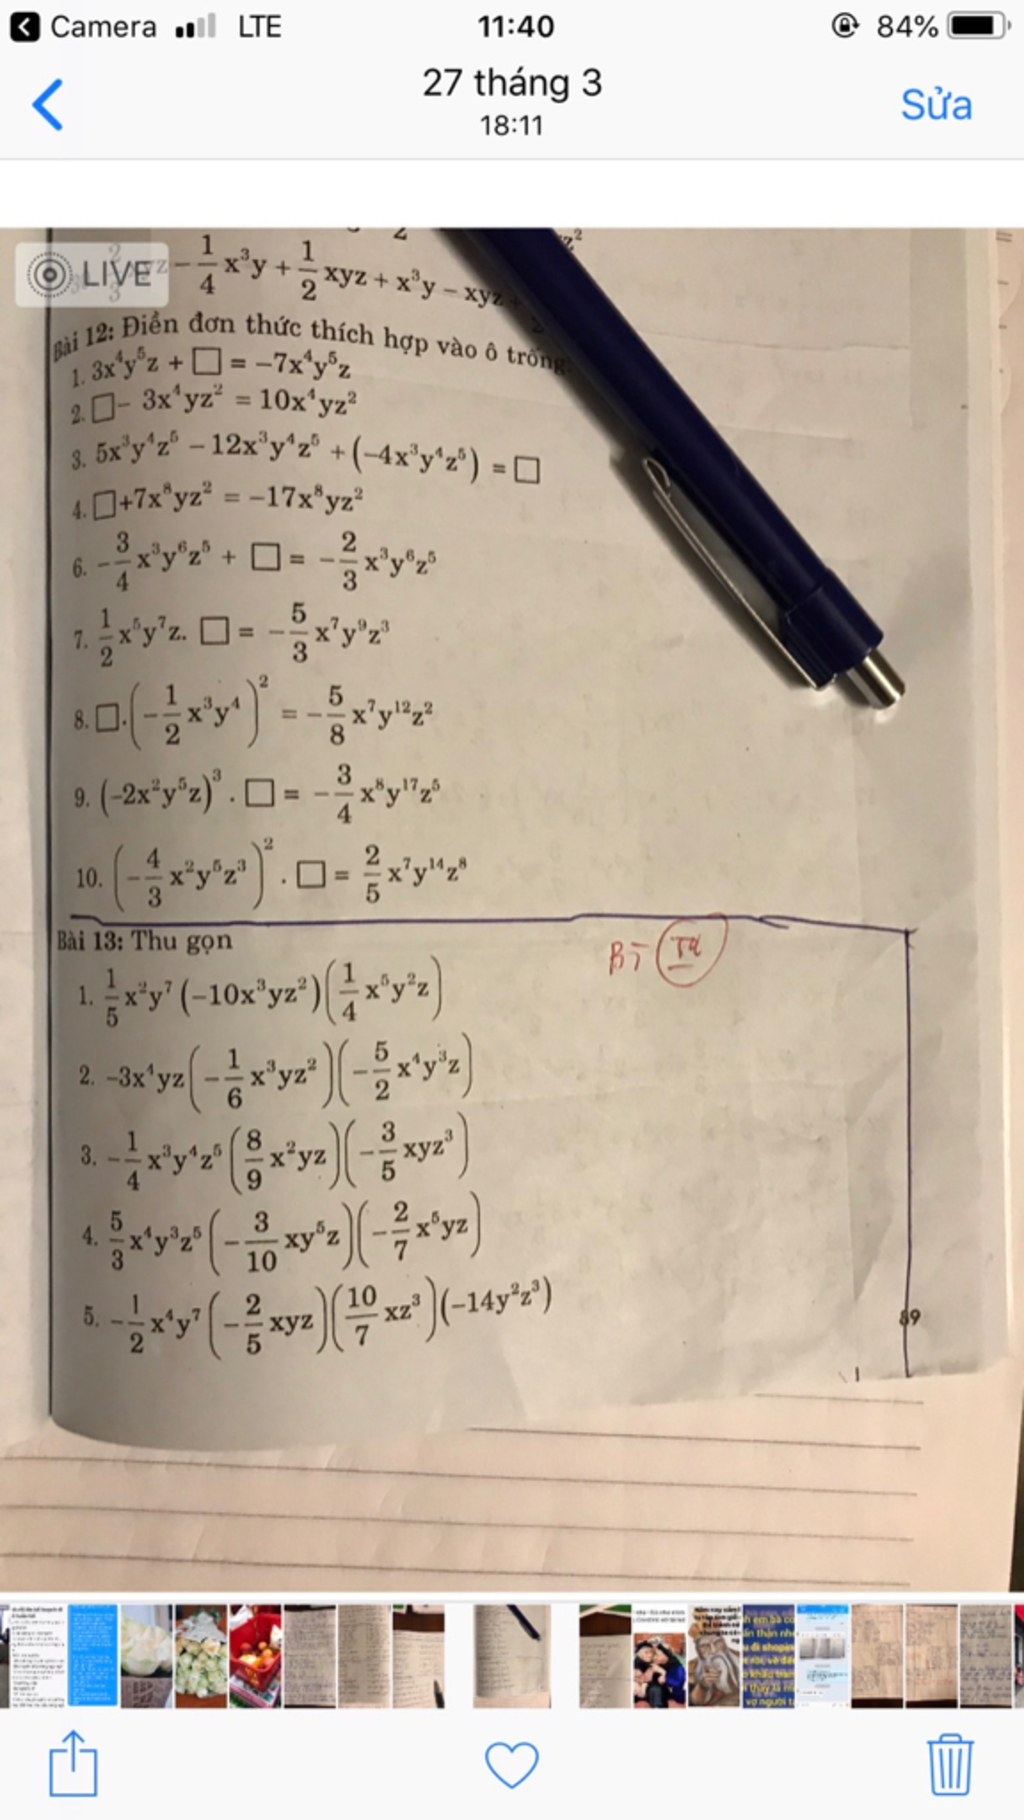 Camera LTE 11:40 84%
27 tháng 3
18:11
Sửa
LIVE
- 1/4 x³y + 1/2 xyz + x³y - xyz
Bài 12: Điền đơn thức thích hợp vào ô trống:
1. 3x⁴y⁵z + □ = -7x⁴y⁵z
2. □ - 3x⁴yz² = 10x⁴yz²
3. 5x³y⁴z⁵ - 12x³y⁴z⁵ + (-4x³y⁴z⁵) = □
4. □+7x⁸yz² = -17x⁸yz²
6. -3/4 x³y⁶z⁵ + □ = -2/3 x³y⁶z⁵
7. 1/2 x⁵y⁷z. □ = -5/3 x⁷y⁹z³
8. □.(-1/2 x³y⁴)² = -5/8 x⁷y¹²z²
9. (-2x²y⁵z)³ . □ = -3/4 x⁸y¹⁷z⁵
10. (-4/3 x²y⁵z³)² . □ = 2/5 x⁷y¹⁴z⁸
Bài 13: Thu gọn
1. 1/5 x²y⁷ (-10x³yz²)(1/4 x⁵y²z)
2. -3x⁴yz(-1/6 x³yz²)(-5/2 x⁴y³z)
3. -1/4 x³y⁴z⁵(8/9 x²yz)(-3/5 xyz³)
4. 5/3 x⁴y³z⁵(-3/10 xy⁵z)(-2/7 x⁵yz)
5. -1/2 x⁴y⁷(-2/5 xyz)(10/7 xz³)(-14y²z³)
89